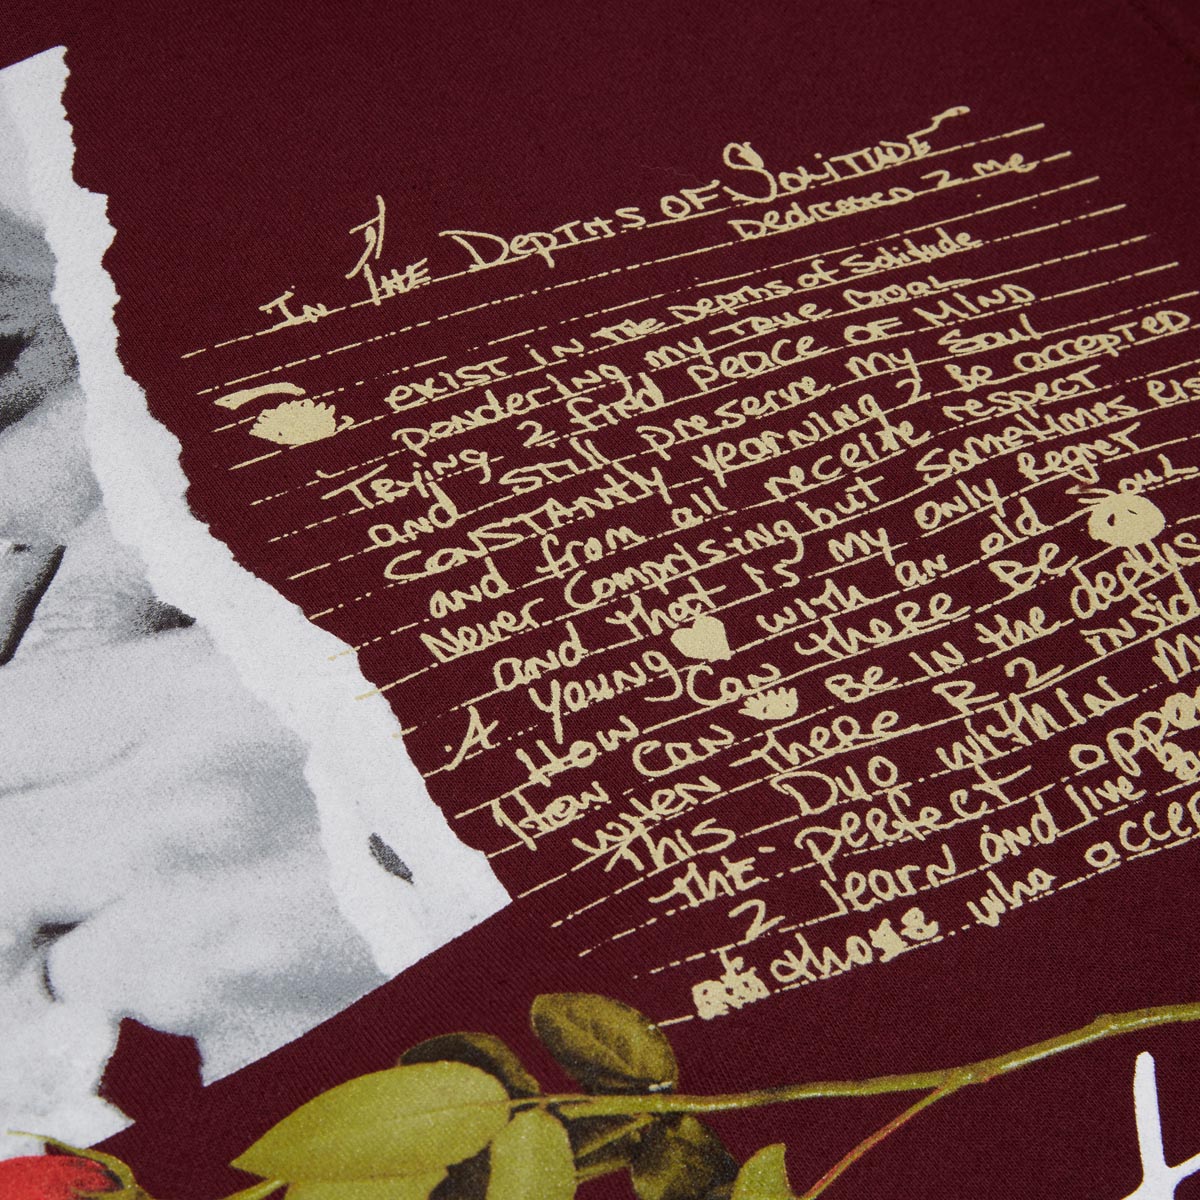 In The Depths of Solitude
Dedicated 2 me
exist in the Depths of Solitude
pondering my true Goal
Trying 2 find peace of Mind
and still preserve my Soul
constantly yearning 2 be accepted
and from all receive respect
Never comprising but sometimes
and that is my only regret
A Young with an old Soul
How can there be
How can Be in the depths
when there R 2 insid
This Duo within M
the perfect oppo
2 learn and live
those who accep